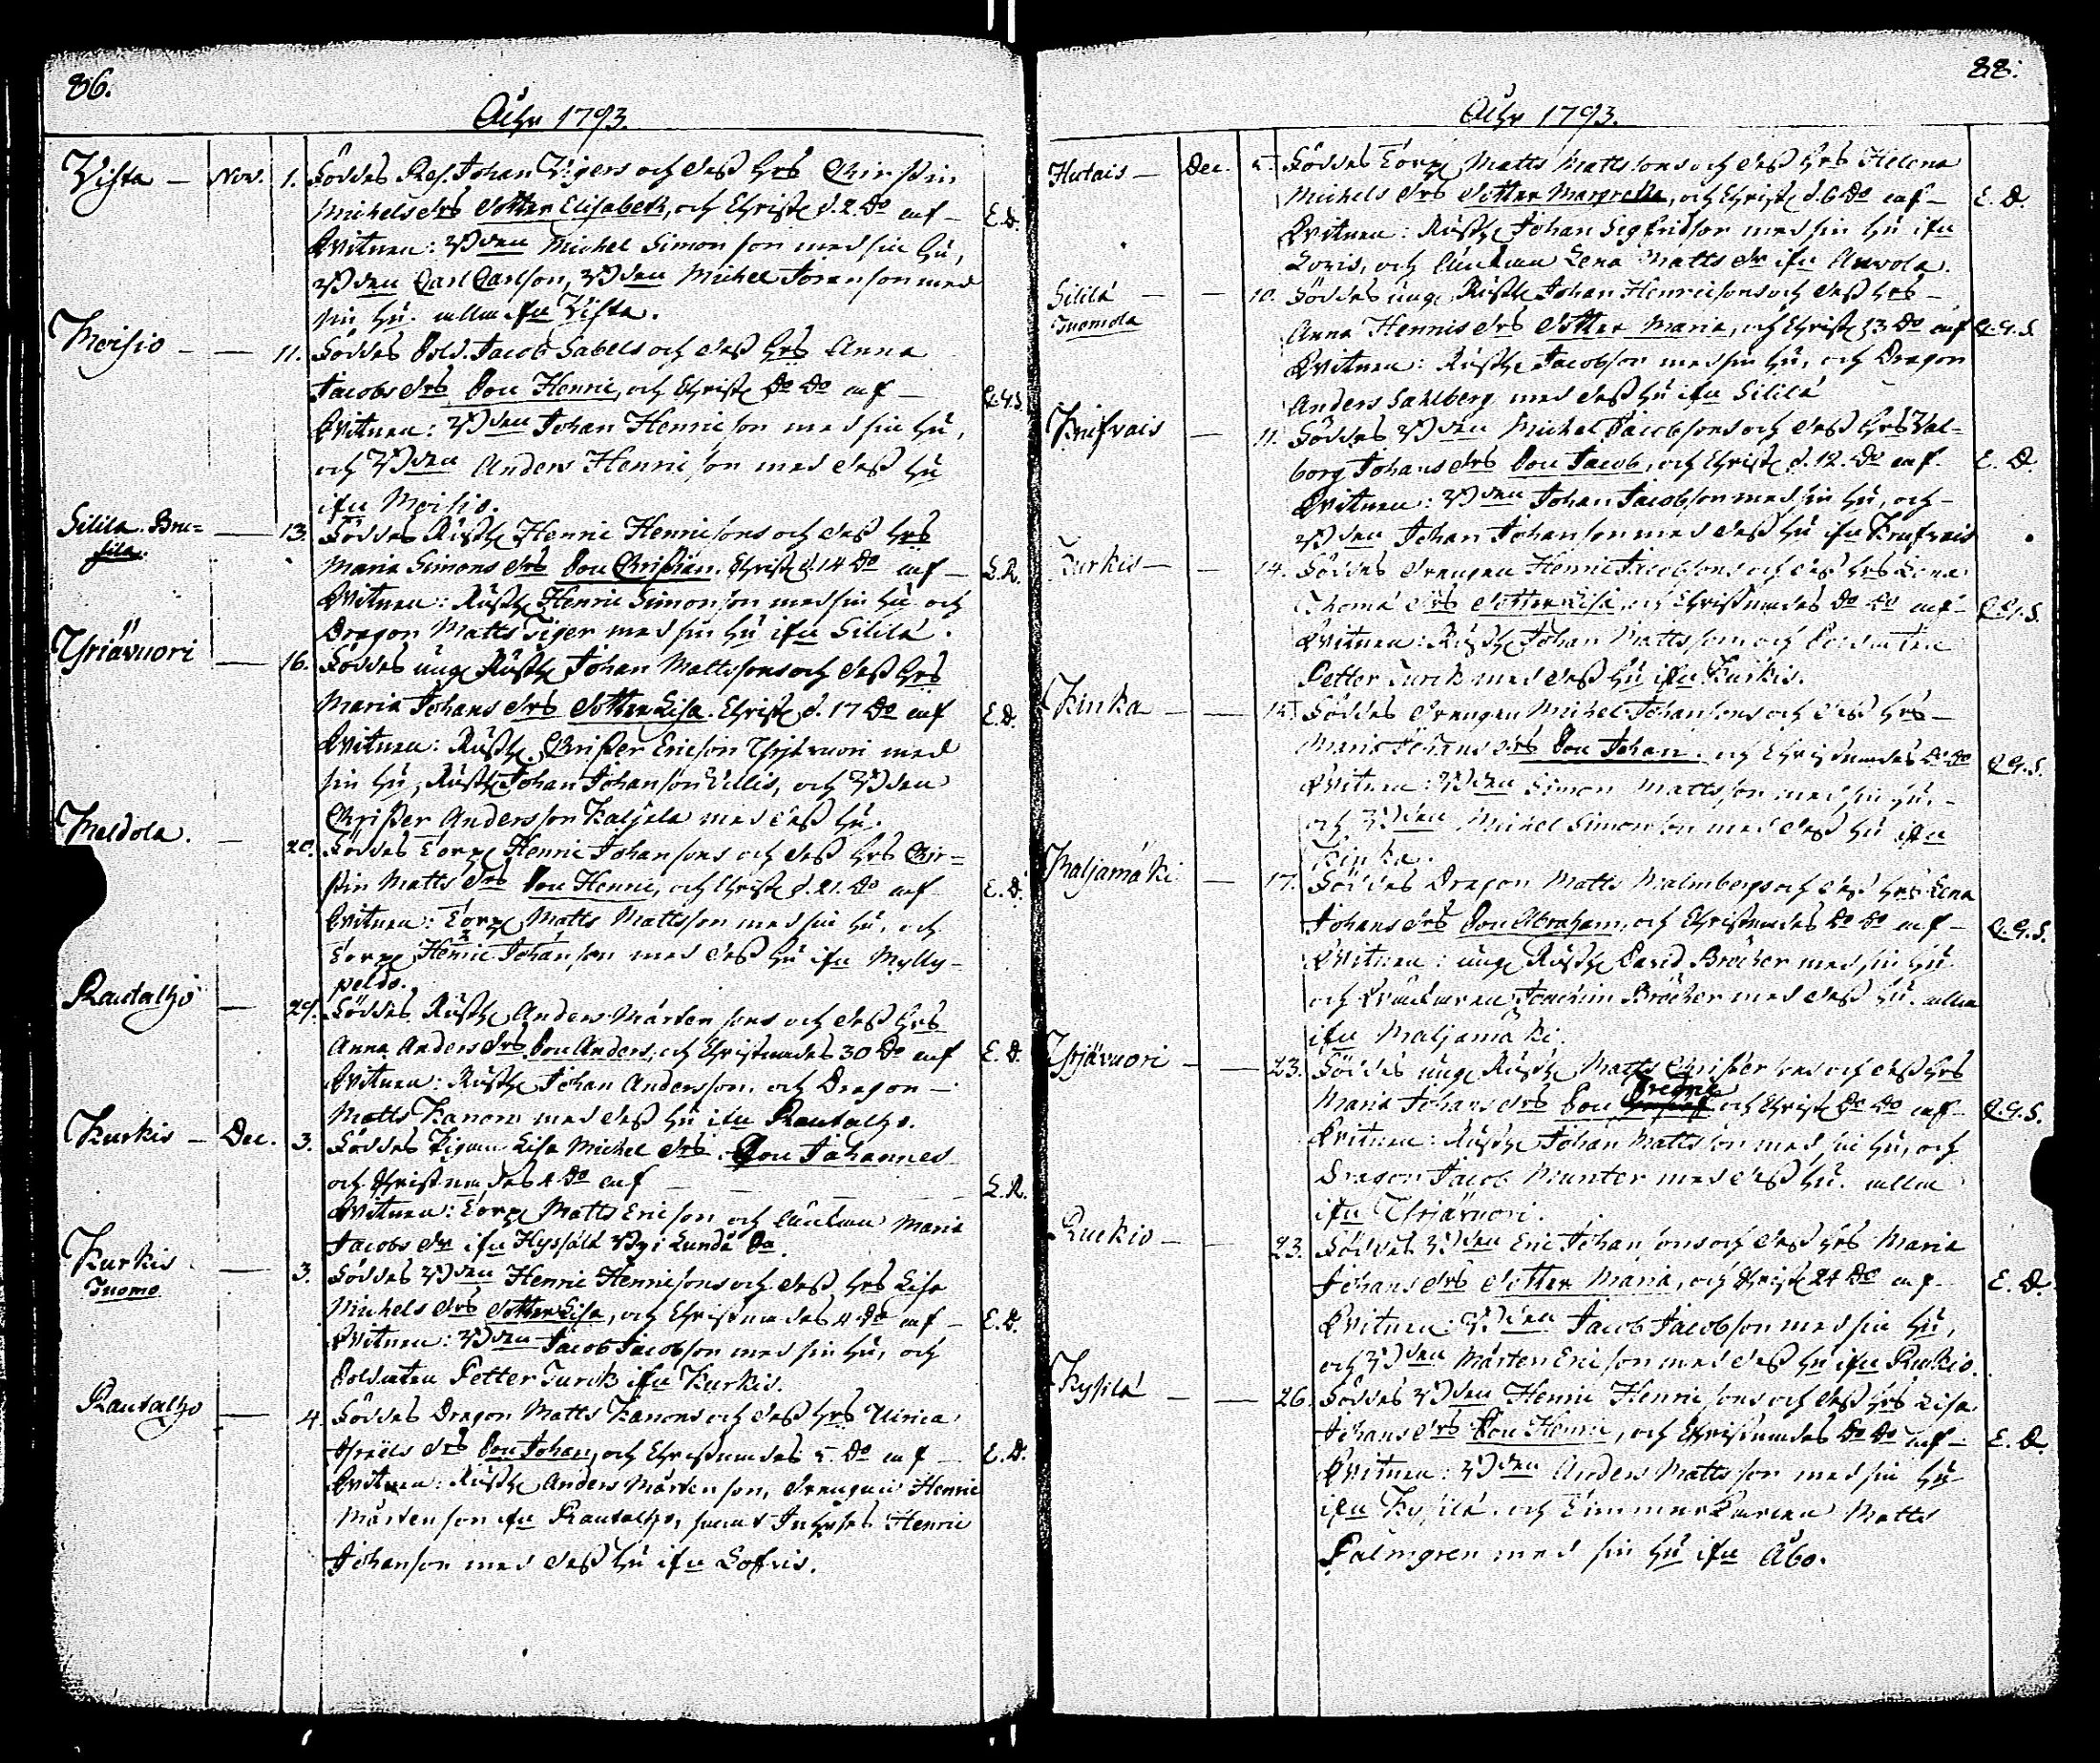 86.
Åhr 1793.
Vista — Nov. 1. Föddes Res. Johan Vigers och dess Hrs Chirstin
Michelsdrs dotter Elisabeth, och Christ d. 2. Do af — E. D.
Vitnen: Bden Michel Simonson med sin Hu,
Bden Carl Carlson, Bden Michel Joranson med
sin Hu. alla ifrn Vista.
Moisio — — 11. Föddes Sold. Jacob Sabels och dess Hrs Anna
Jacobsdrs Son Henric, och Christ Do Do af — Q.G.S.
Vitnen: Bden Johan Henricson med sin Hu,
och Bden Anders Henricson med dess Hu
ifrn Moisio.
Silila. Bru=
sila. — 13. Föddes Rusth Henric Henricsons och dess Hrs
Maria Simonsdrs Son Christian. Christ d. 14 Do af — L.R.
Vitnen: Rusth Henric Simonson med sin Hu och
Dragon Matts Tiger med sin Hu ifrn Sililä.
Yhriävuori — 16. Föddes ung Rusth Johan Mattssons och dess Hrs
Maria Johansdrs dotter Lisa. Christ d. 17 Do af E. D.
Vitnen: Rusth Christer Ericson Yhrjävuori med
sin Hu, Rusth Johan Johanson Villis, och Bden
Christer Andersson Kaljala med dess Hu.
Meldola. — 20. Föddes Torp Henric Johansons och dess Hrs Chir=
stin Mattsdrs Son Henric, och Christ d. 21. Do af E. D.
Vitnen: Torp Matts Mattsson med sin Hu, och
Torp Henric Johanson med dess Hu ifrn Mylly-
peldo.
Rautalho — 29. Föddes Rusth Anders Mårtensons och dess Hrs
Anna Andersdrs Son Anders, och Christnades 30 Do af E. D.
Vitnen: Rusth Johan Andersson, och Dragon —
Matts Kanon med dess Hu ifrn Rautalho.
Kurkis — Dec. 3. Föddes Pigan Lisa Micheldrs Son Johannes
och Christnades 4 Do af — L.R.
Vitnen: Torp Matts Ericson och Enkan Maria
Jacobsdr ifrn Hyssälä By i Lundå So.
Kurkis
Tuomo — 3. Föddes Bden Henric Henricsons och dess Hrs Lisa
Michelsdrs dotter Lisa, och Christnades 4 Do af — E. D.
Vitnen: Bden Jacob Jacobson med sin Hu, och
Soldaten Petter Turck ifrn Kurkis.
Rautalho — 4. Föddes Dragon Matts Kanons och dess Hrs Ulrica
Israelsdrs Son Johan, och Christnades 5. Do af — E. D.
Vitnen: Rusth Anders Mårtenson, drengen Henric
Mårtenson ifrn Rautalho, samt Inhyses Henric
Johanson med dess Hu ifrn Lofvis.
88.
Åhr 1793.
Hutais — Dec. 5. Föddes Torp Matts Mattssons och dess Hrs Helena
Michelsdrs dotter Margreta, och Christ d. 6 Do af — E. D.
Vitnen: Rusth Johan Sigfridson med sin Hu ifrn
Loris, och Enkan Lena Mattsdr ifrn Auvola.
Sililä — — 10. Föddes ung Rusth Johan Henricsons och dess Hrs —
Tuomola
Anna Henricsdrs dotter Maria, och Christ 13 Do af Q.G.S.
Vitnen: Rusth Jacobson med sin Hu, och Dragon
Anders Sahlberg med dess Hu ifrn Sililä
Knifvais — 11. Föddes Bden Michel Jacobsons och dess Hrs Val=
borg Johansdrs Son Jacob, och Christ d. 12. Do af. E. D.
Vitnen: Bden Johan Jacobson med sin Hu, och —
Bden Johan Johanson med dess Hu ifrn Knifvais
Kurkis — — 14. Föddes drengen Henric Jacobsons och dess Hrs Lena
Thomædrs dotter Lisa, och Christnades Do Do af Q.G.S.
Vitnen: Rusth Johan Mattsson och Soldaten
Petter Turck med dess Hu ifrn Kurkis.
Kinka — — 15. Föddes drengen Michel Johansons och dess Hrs —
Maria Johansdrs Son Johan. och Christnades Do Do Q.G.S.
Vitnen: Bden Simon Mattsson med sin Hu, —
och Bden Michel Simonson med dess Hu ifrn
Kinka.
Maljamäki — 17. Föddes Dragon Matts Malmbergs och dess Hrs Lena
Johansdrs Son Abraham, och Christnades Do Do af — Q.G.S.
Vitnen: ung Rusth David Bröcker med sin Hu
och Joachim Bröcker med dess Hu. alla
ifrn Maljamäki.
Yhrjävuori — — 23. Föddes ung Rusth Matts Christersons och dess Hrs
Maria Johansdrs Son och Christ Do Do af Q.G.S.
Vitnen: Rusth Johan Mattsson med sin Hu, och
Dragon Jacob Munter med dess Hu. alla
ifrn Yhrjävuori.
Ruckio — — 23. Föddes Bden Eric Johansons och dess Hrs Maria
Johansdrs dotter Maria, och Christ 24 Do af E. D.
Vitnen: Bden Jacob Jacobson med sin Hu,
och Bden Mårten Ericson med dess Hu ifrn Ruckio.
Kysilä — — 26. Föddes Bden Henric Henricsons och dess Hrs Lisa
Johansdrs Son Henric, och Christnades Do Do af — E. D.
Vitnen: Bden Anders Mattsson med sin Hu
ifrn Kysilä. och Timmerkarlen Matts
Palmgren med sin Hu ifrn Åbo.